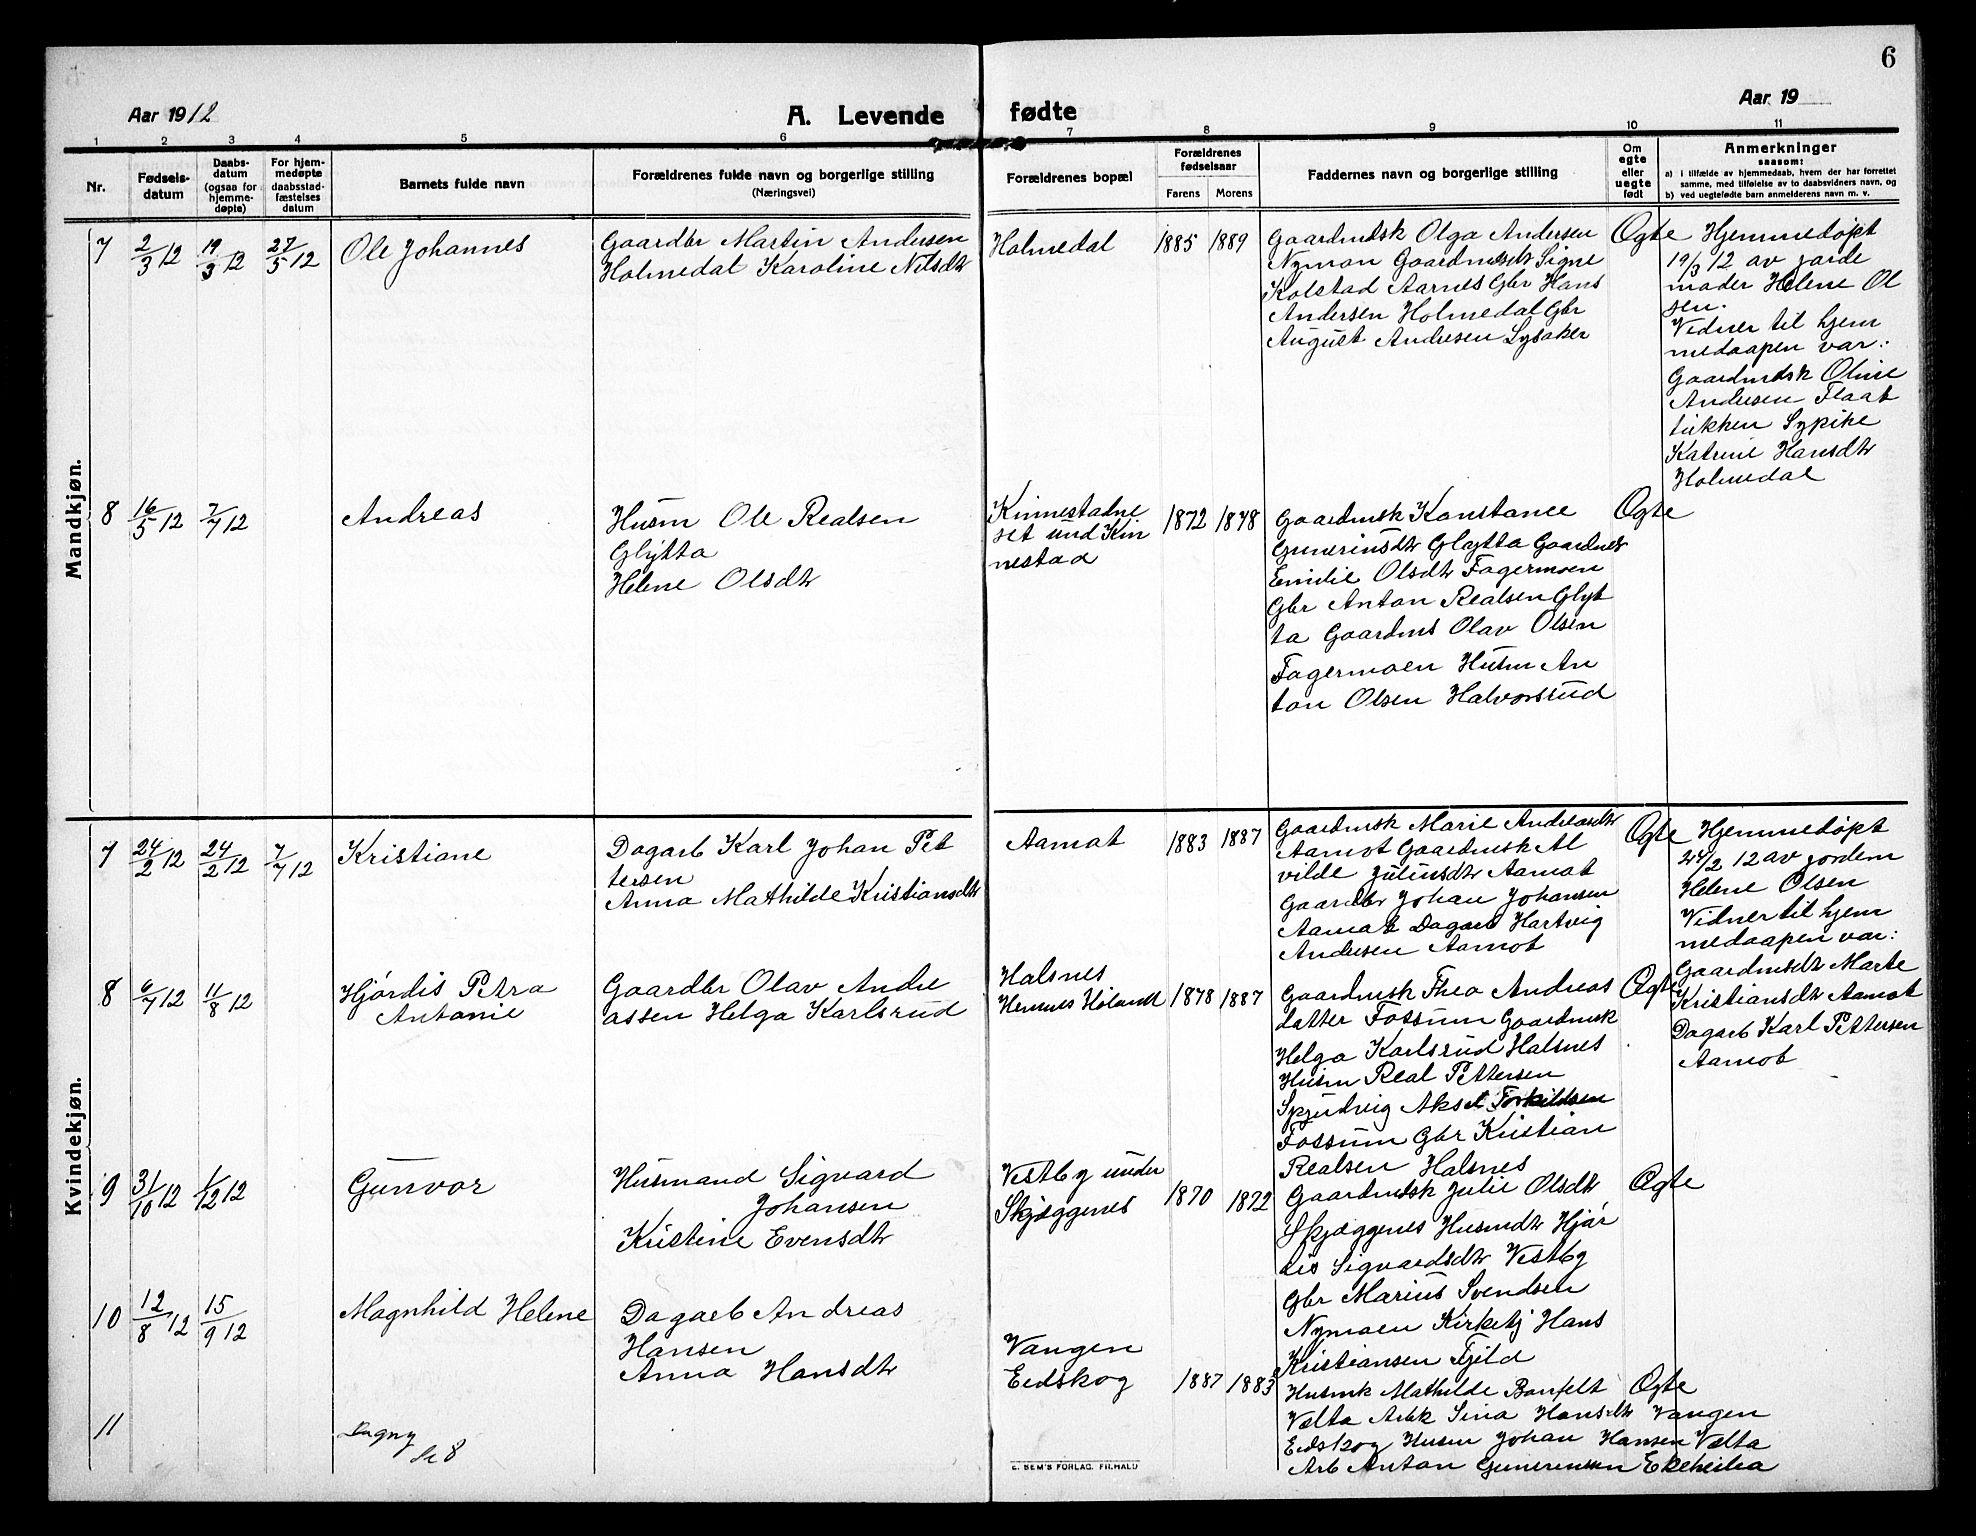 6
Aar 1912
A. Levende fødte
Aar 19
1 2 3 4 5 6 7 8 9 10 11
Nr.
Fødsels-
datum
Daabs-
datum
(ogsaa for
hjemme-
døpte)
For hjem-
medøpte
daabsstad-
fæstelses
datum
Barnets fulde navn
Forældrenes fulde navn og borgerlige stilling
(Næringsvei)
Forældrenes bopæl
Forældrenes
fødselsaar
Farens Morens
Faddernes navn og borgerlige stilling
Om
egte
eller
uegte
født
Anmerkninger
saasom:
a) i tilfælde av hjemmedaab, hvem der har forrettet
samme, med tilføielse av to daabsvidners navn, og
b) ved uegtefødte barn anmelderens navn m. v.
Mandkjøn.
7 2/3 12 19/3 12 27/5 12
Ole Johannes
Gaardbr Martin Andersen
Holmedal Karoline Nilsdtr
Holmedal
1885 1889
Gaardmdsk Olga Andersen
Nyman Gaardmdsdtr Signe
Kolstad Aarnes Gbr Hans
Andersen Holmedal Gbr
August Andresen Lysaker
Ogte
Hjemmedøpt
19/3 12 av jorde
moder Helene Ol
sen.
Vidner til hjem
medaapen var:
Gaardmdsk Oline
Andresen Flaat
tukken Sypike
Katrine Hansdtr
Holmedal
8 16/5 12 7/7 12
Andreas
Husm Ole Realsen
Glytta
Helene Olsdtr
Kinnestadne
set und Kin
nestad
1872 1878
Gaardmsk Konstance
Gunerinsdtr Glytta Gaardmdt
Emilie Olsdtr Fagermoen
Gbr Anton Realsen Glyt
ta Gaardms Olav Olsen
Fagermoen Husm An
ton Olsen Halvorsrud
Ogte
Kvindekjøn.
7 24/2 12 24/2 12 7/7 12
Kristiane
Dagarb Karl Johan Pet
tersen
Anna Mathilde Kristiansdtr
Aamot
1883 1887
Gaardmsk Marie Andreasdtr
Aamot Gaardmsk Al
vilde Juliusdtr Aamot
Gaardbr Johan Johansen
Aamot Dagarb Hartvig
Andresen Aamot
Ogte
Hjemmedøpt
24/2 12 av jordem
Helene Olsen
Vidner til hjem
medaapen var:
Gaardmsdtr Marte
Kristiansdtr Aamot
Dagarb Karl Pettersen
Aamot
8 6/7 12 11/8 12
Hjørdis Petra
Antonie
Gaardbr Olav Andre
assen Helga Karlsrud
Halsnes
Hemnes Høland
1878 1887
Gaardmsk Thea Andreas
datter Fossum Gaardmsk
Helga Karlsrud Halsnes
Husm Real Pettersen
Spjudvig Aksel Torkildsen
Fossum Gbr Kristian
Realsen Halsnes
Ogte
9 31/10 12 1/12 12
Gunvor
Husmand Sigvard
Johansen
Kristine Evensdtr
Vestby under
Skjæggenes
1870 1872
Gaardmdsk Julie Olsdtr
Skjæggenes Husmdtr Hjør
dis Sigvardsdtr Vestby
Gbr Marius Svendsen
Nymoen Kirketj Hans
Kristiansen Fjeld
Ogte
10 12/8 12 15/9 12
Magnhild Helene
Dagarb Andreas
Hansen
Anna Hansdtr
Vangen
Eidskog
1887 1883
Husmk Mathilde Banfelt
Vælta Arbk Sina Hansdtr Vangen
Eidskog Husm Johan Hansen Vælta
Arb Anton Gunerussen Ekeheiha
Ogte
11
Dagny
Se 8
E. SEM'S FORLAG, FR.HALD